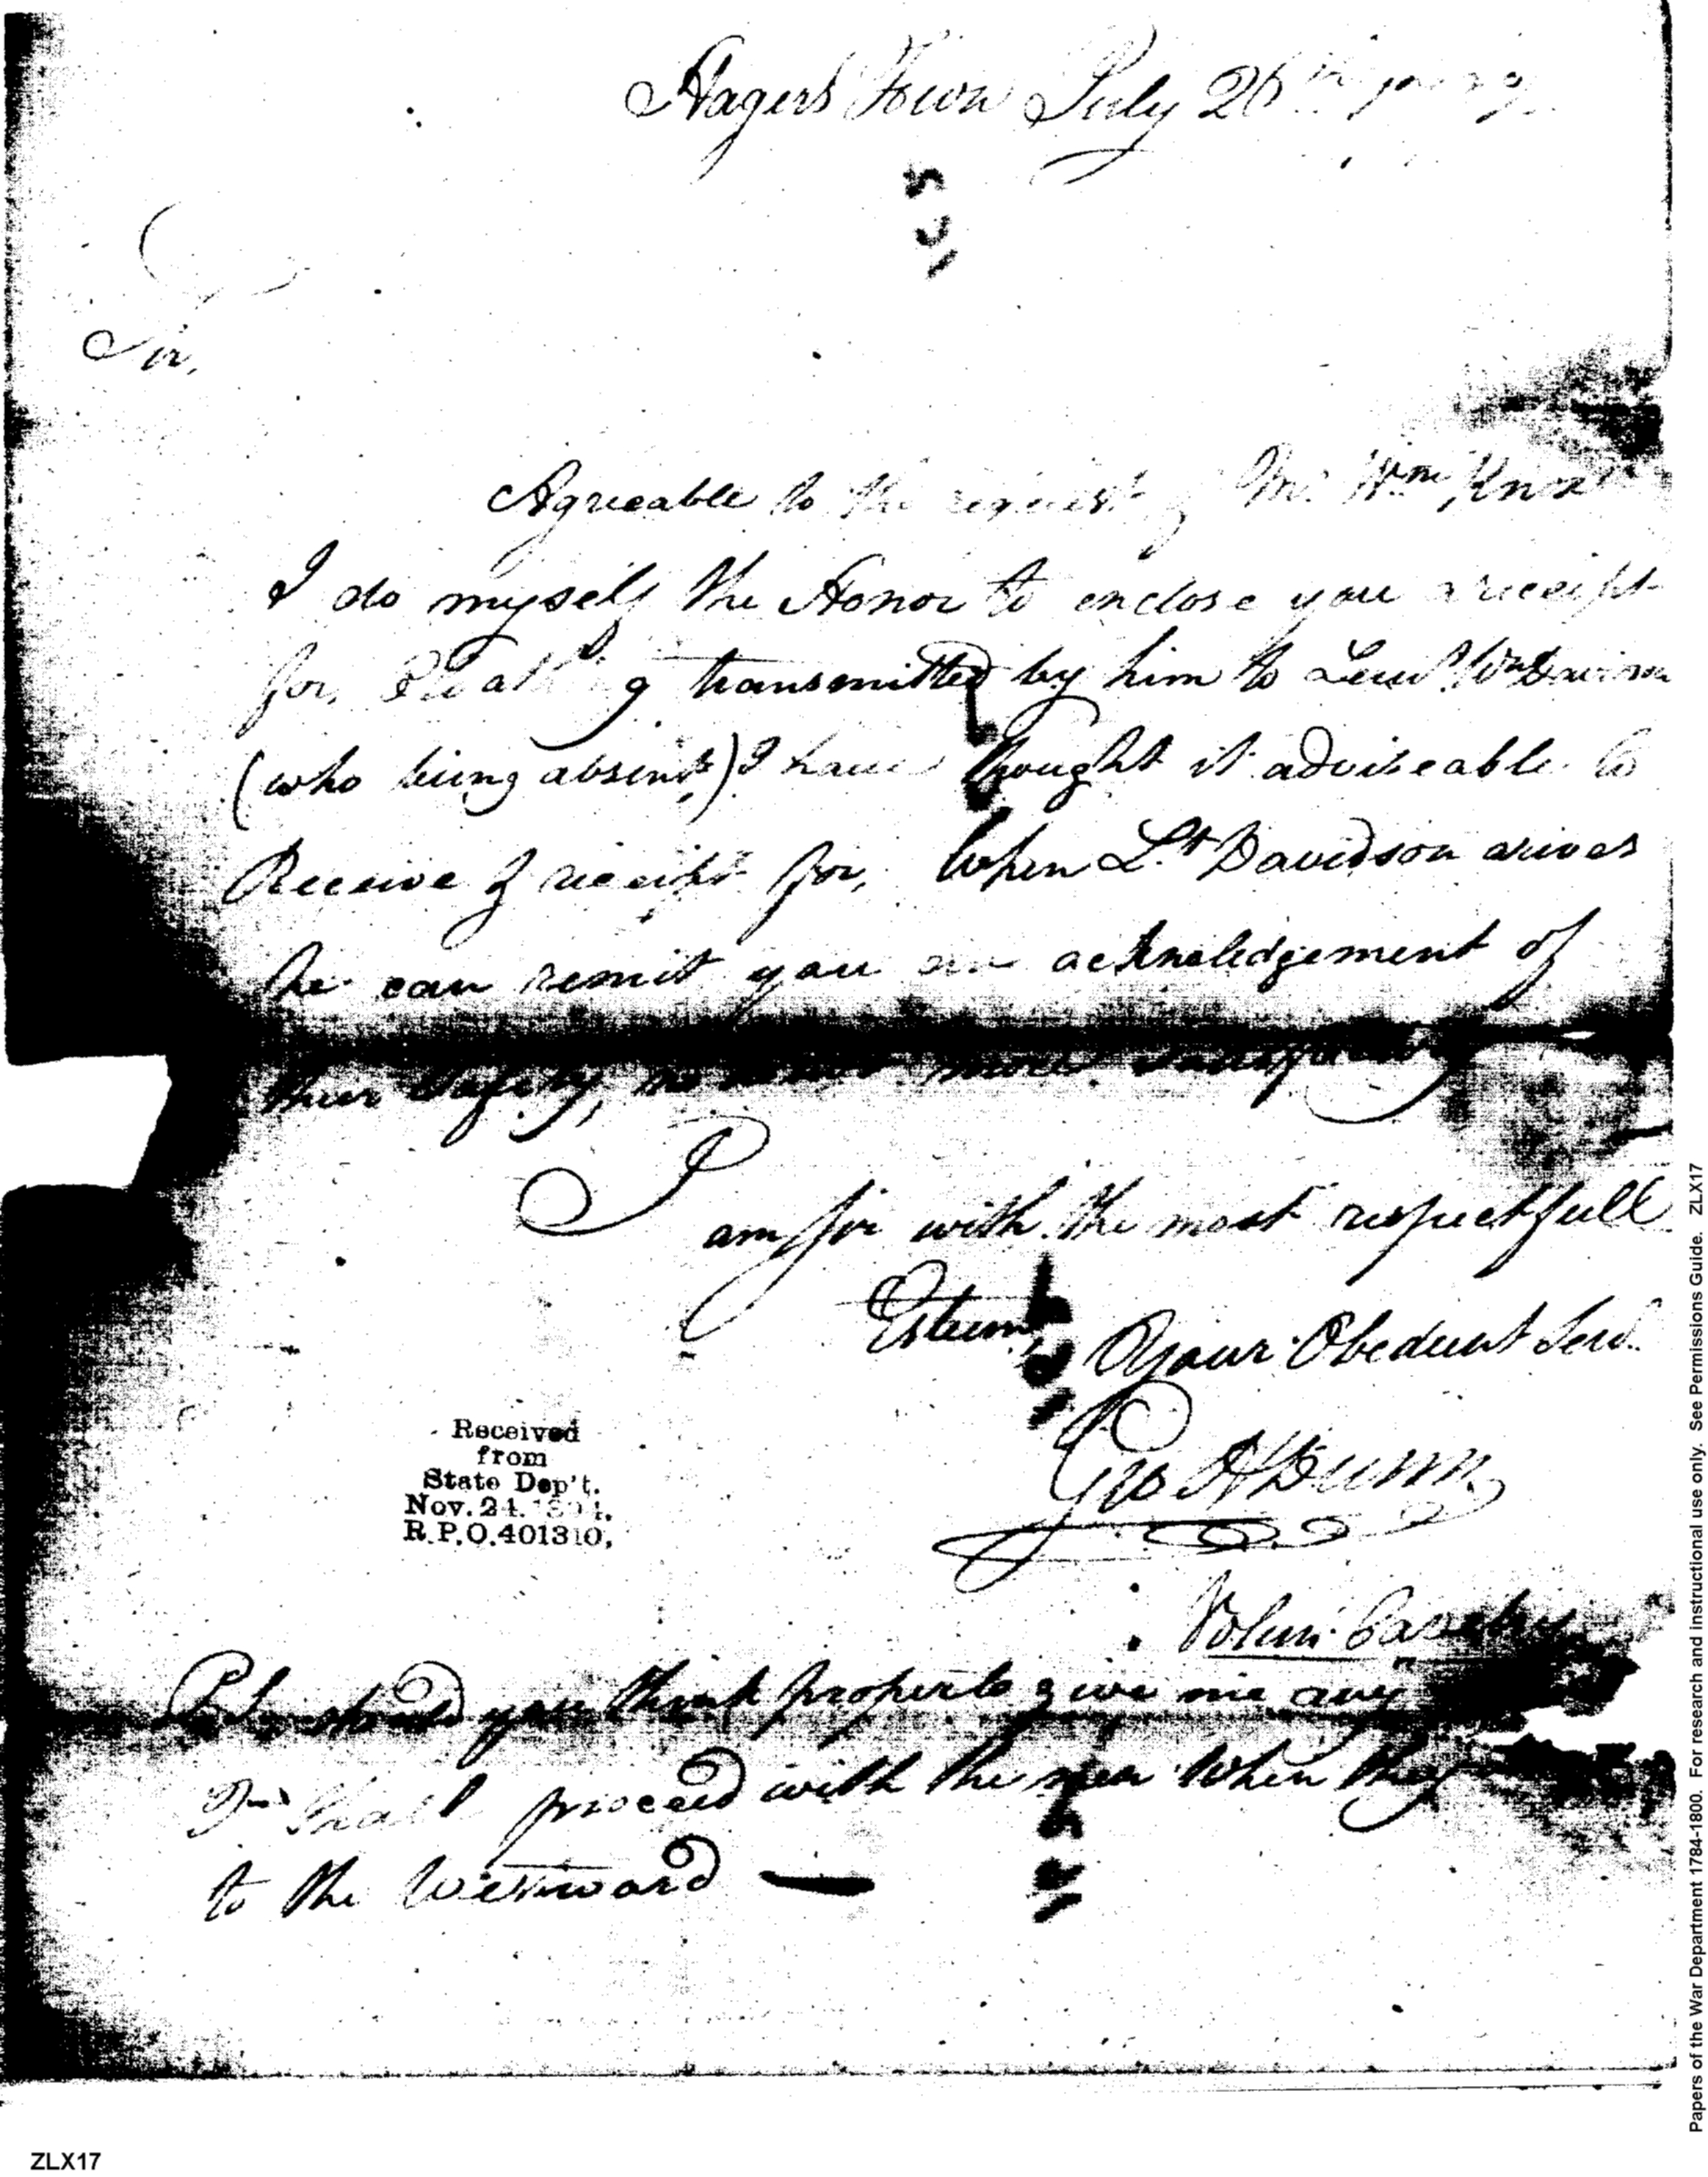 Hagers Town July 26th
Sir,
Agreeable to the request of Mr. Wm Knox
I do myself the Honor to enclose you a receipt
for, Cloathing transmitted by him to Leiut. Wm Davison
(who being absent) I have thought it adviseable to
Receive & receipt for, When Lt Davidson arives
he can remit you an acknoledgement of
their Safety, more
I
am Sir with the most respectfull
Esteem, Your Obedient Serv.
Geo H Dunn
Volun. Cavalry
should you think proper to give me any
I shall proceed with the men When they
to the Westward —
Received
from
State Dep't.
Nov. 24. 1894.
R.P.O. 401310,
Papers of the War Department 1784-1800. For research and instructional use only. See Permissions Guide. ZLX17
ZLX17